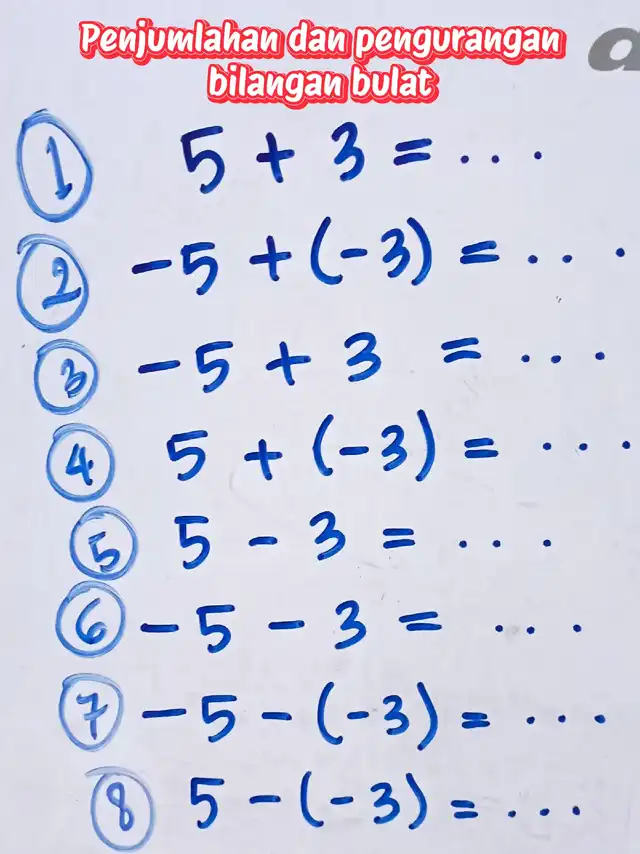 Penjumlahan dan pengurangan
bilangan bulat
1 5 + 3 = ...
2 -5 + (-3) = ...
3 -5 + 3 = ...
4 5 + (-3) = ...
5 5 - 3 = ...
6 -5 - 3 = ...
7 -5 - (-3) = ...
8 5 - (-3) = ...